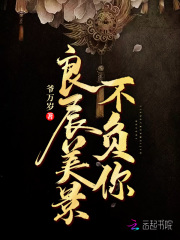 良辰美景
不负你
爷万岁 著
云起书院